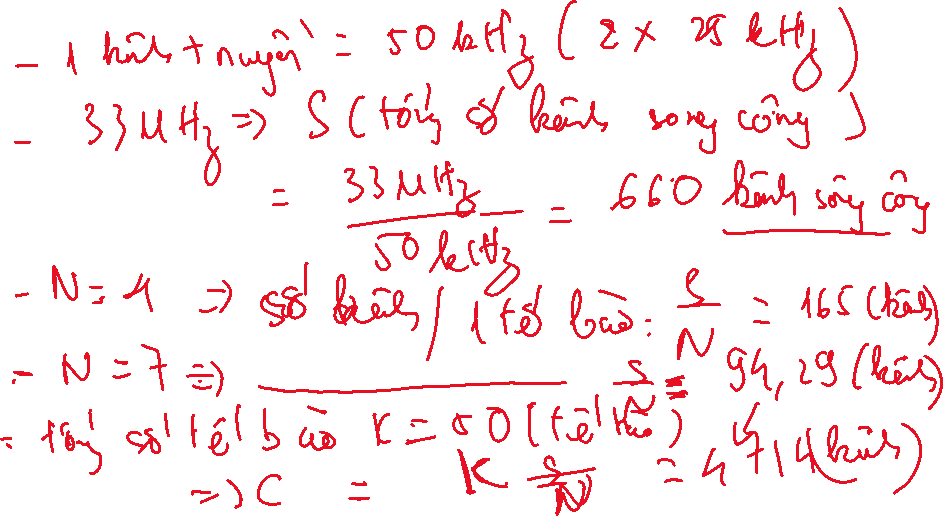 - 1 kênh truyền = 50 kHz ( 2 x 25 kHz )
- 33 MHz => S ( tổng số kênh song công )
= 33 MHz / 50 kHz = 660 kênh song công
- N = 4 => số kênh / 1 tế bào: S/N = 165 (kênh)
- N = 7 => ________ S/N = 94,29 (kênh)
- tổng số tế bào K = 50 (tế bào)
=> C = K S/N = 4714 (kênh)